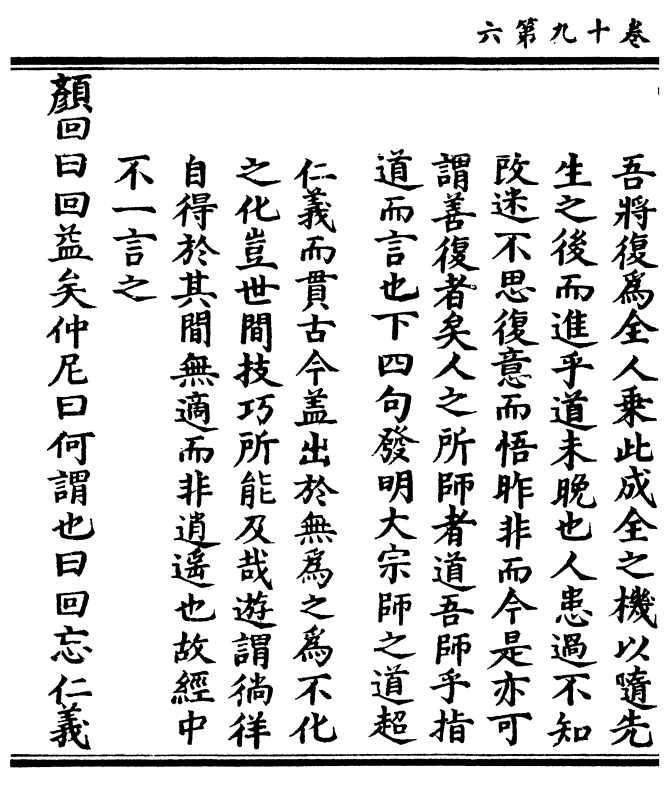 卷十九第六
吾將復爲全人乗此成全之機以隨先
生之後而進乎道未晚也人患過不知
改迷不思復意而悟昨非而今是亦可
謂善復者矣人之所師者道吾師乎指
道而言也下四句發明大宗師之道超
仁義而貫古今盖出於無爲之爲不化
之化豈世間技巧所能及哉遊謂徜徉
自得於其間無適而非逍遥也故經中
不一言之
顏回曰回益矣仲尼曰何謂也曰回忘仁義